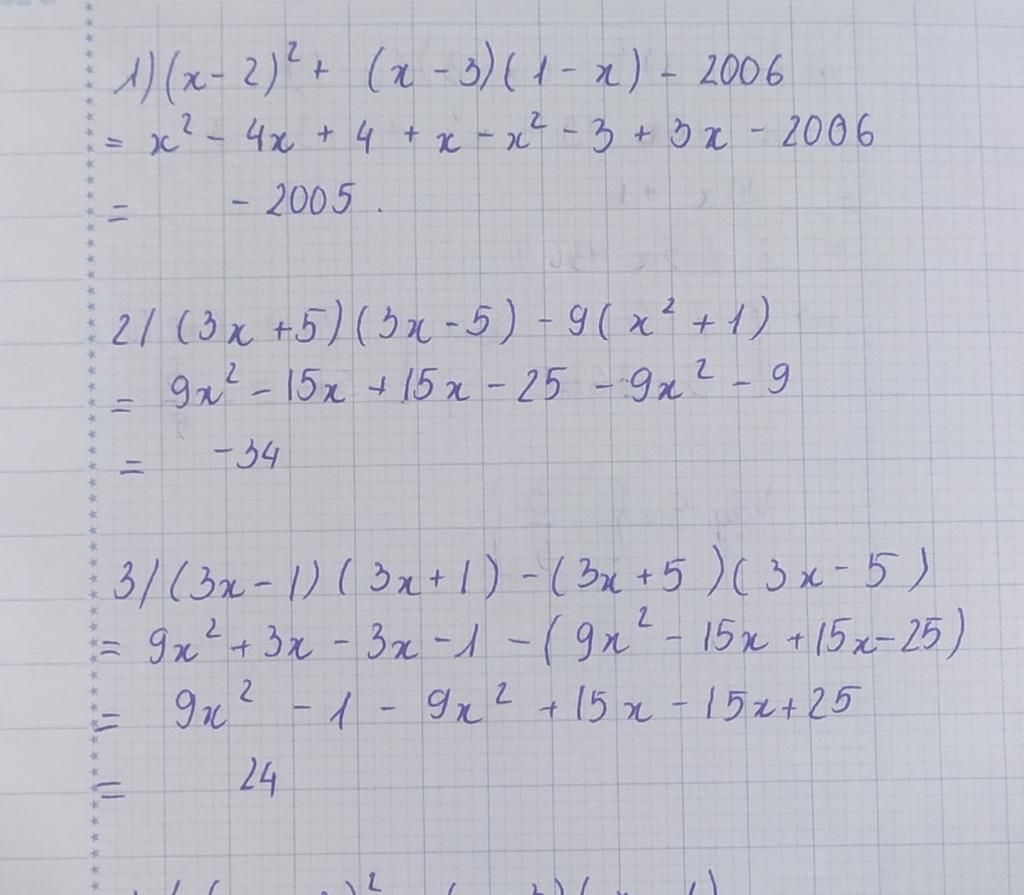 1) (x - 2)² + (x - 3)(1 - x) - 2006
= x² - 4x + 4 + x - x² - 3 + 3x - 2006
= - 2005.
2/ (3x + 5)(3x - 5) - 9(x² + 1)
= 9x² - 15x + 15x - 25 - 9x² - 9
= -34
3/ (3x - 1)(3x + 1) - (3x + 5)(3x - 5)
= 9x² + 3x - 3x - 1 - (9x² - 15x + 15x - 25)
= 9x² - 1 - 9x² + 15x - 15x + 25
= 24